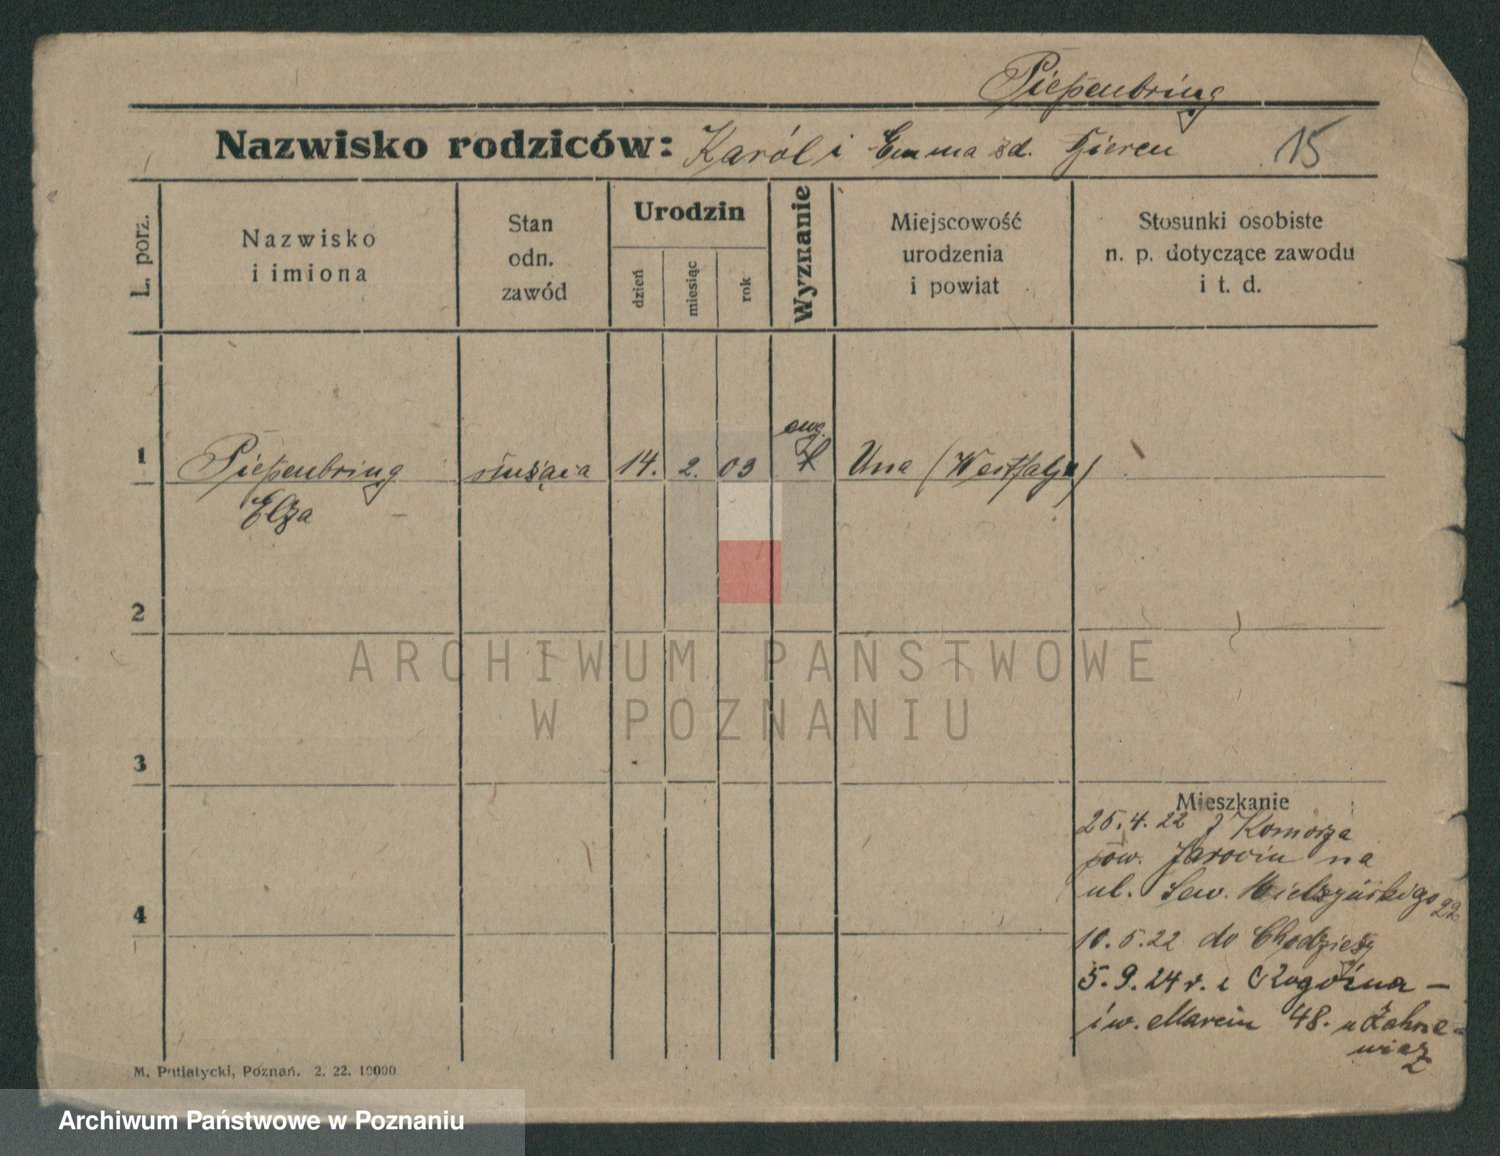 Piepenbring
Nazwisko rodziców: Karól i Emma zd. 15
L. porz.
Nazwisko
i imiona
Stan
odn.
zawód
Urodzin
dzień
miesiąc
rok
Wyznanie
Miejscowość
urodzenia
i powiat
Stosunki osobiste
n. p. dotyczące zawodu
i t. d.
ewg.
1 Piepenbring służąca 14. 2. 03 Una (Westfalja)
Elza
2
3
4
Mieszkanie
25.4.22 z Komorza
pow. Jarocin na
ul. Sew. Mielżyńskiego 22
10.5.22 do Chodzieży
5.9.24 r. z Rogoźna -
św. Marcin 48. u
M. Putiatycki, Poznań. 2. 22. 10000
ARCHIWUM PAŃSTWOWE
W POZNANIU
Archiwum Państwowe w Poznaniu